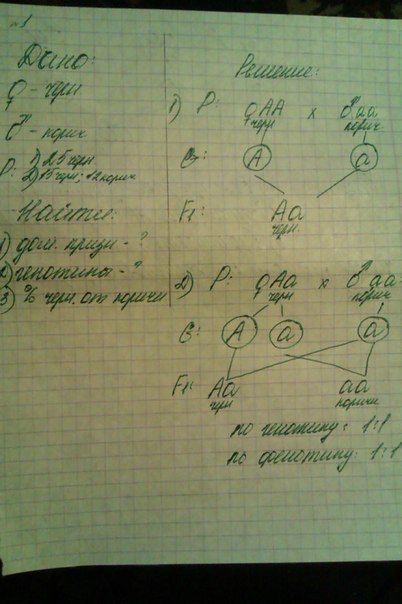 №1
Дано:
♀ - черн
♂ - корич
P: 1) 25 черн
2) 15 черн; 12 корич
Найти:
1) дом. призн - ?
2) генотипы - ?
3) % черн. от коричн
Решение:
1) P: ♀AA x ♂aa
черн корич
G: A a
F1: Aa
черн
2) P: ♀Aa x ♂aa
черн корич
G: A a a
F1: Aa aa
черн коричн
по генотипу: 1:1
по фенотипу: 1:1